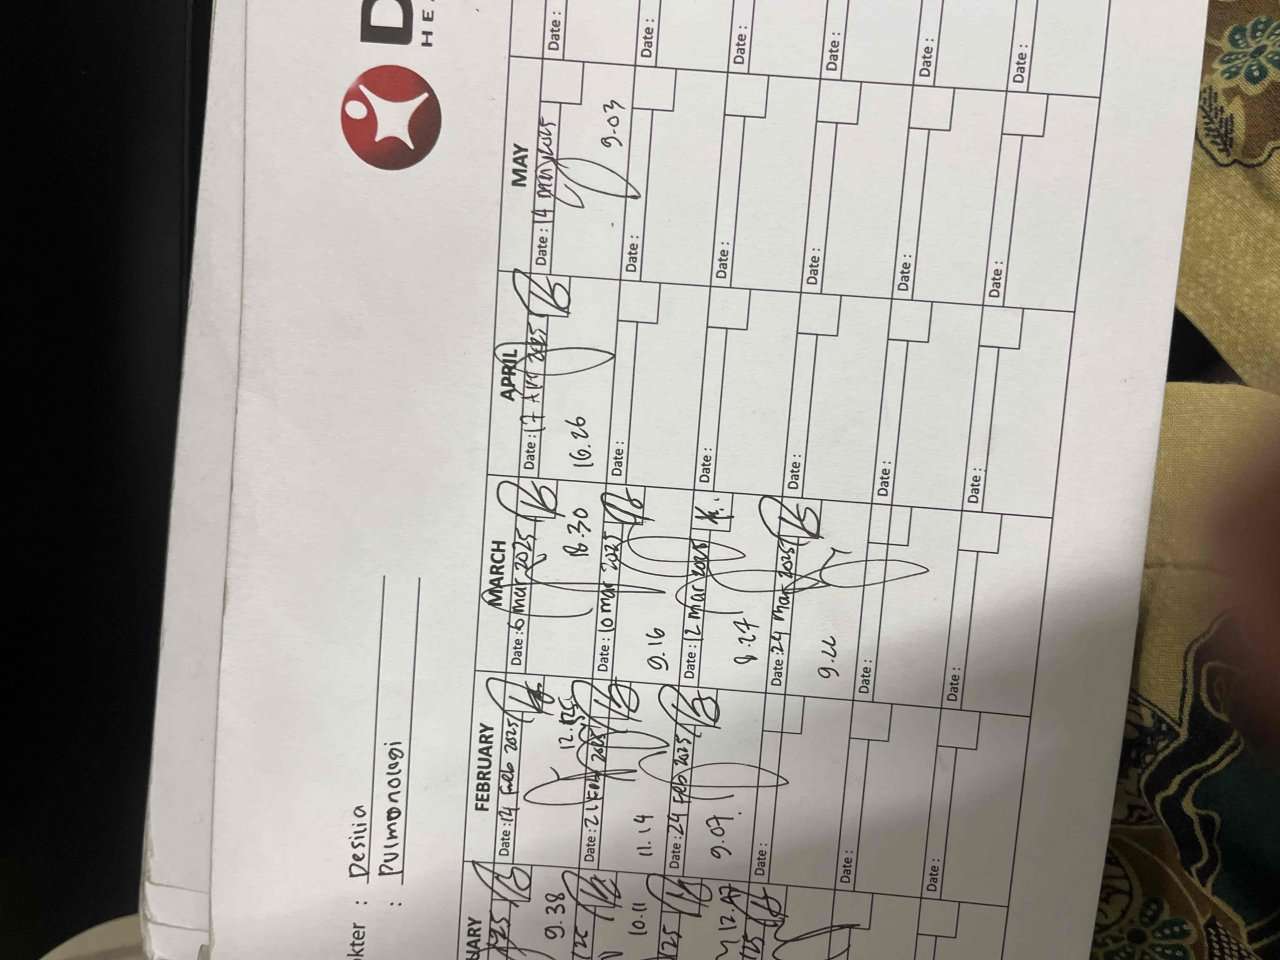 D
HE
kter : Desilia
: Pulmonologi
UARY FEBRUARY MARCH APRIL MAY
Date : 14 Feb 2025 Date : 6 mar 2025 Date : 17 Apr 2025 Date : 14 May 2025 Date :
9.38 18.30 16.26 9.03
Date : 21 Feb 2025 Date : 10 mar 2025 Date : Date : Date :
10.11 11.14 9.16
Date : 24 Feb 2025 Date : 12 mar 2025 Date : Date : Date :
9.07 8.27
Date : Date : 24 mar 2025 Date : Date : Date :
9.22
Date : Date : Date : Date : Date :
Date : Date : Date : Date : Date :